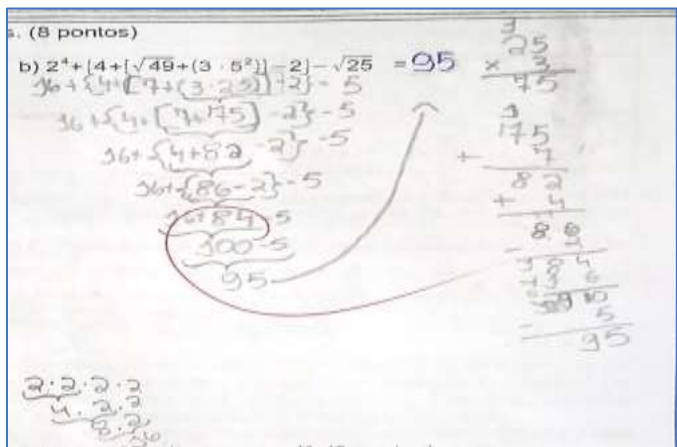 s. (8 pontos)
b) 2⁴+{4+[√49+(3 · 5²)]−2}−√25 = 95
16+{4+[7+(3·25)]−2}−5
16+{4+[7+75]−2}−5
16+{4+82−2}−5
16+{86−2}−5
16+84−5
100−5
95
1
25
× 3
75
1
75
+ 7
82
+ 4
86
− 2
84
+ 16
− 5
95
2·2·2·2
4·2·2
8·2
16